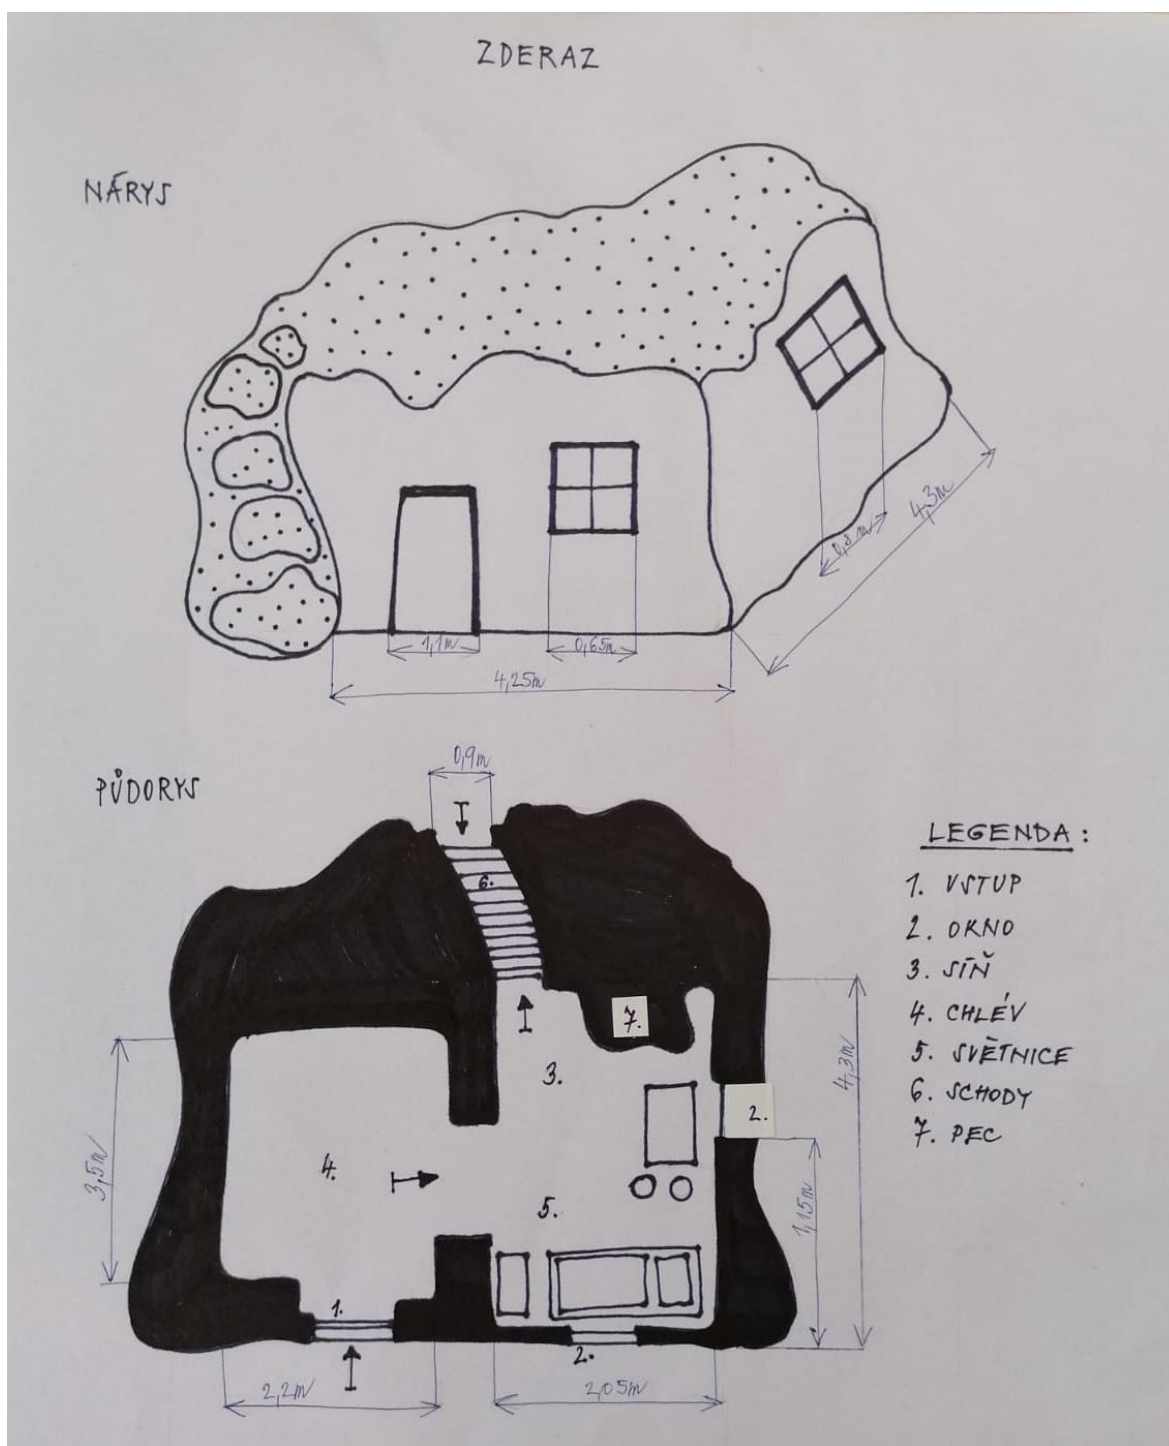 ZDERAZ
NÁRYS
4,3m
0,8m
1,1m
0,65m
4,25m
0,9m
PŮDORYS
6.
7.
3.
2.
4.
5.
1.
2.
3,5m
4,3m
1,15m
2,2m
2,05m
LEGENDA:
1. VSTUP
2. OKNO
3. SÍŇ
4. CHLÉV
5. SVĚTNICE
6. SCHODY
7. PEC